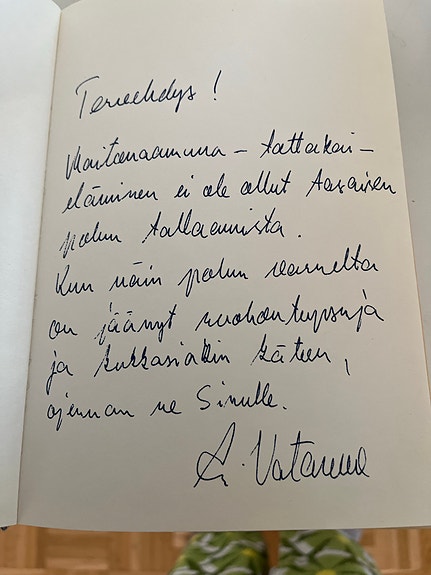 Tervehdys!
– taattakai–
eläminen ei ole ollut tasaisen
polun tallaamista.
Kun näin polun varrelta
on jäänyt ruohontupsuja
ja kukkasiakin käteen,
ojennan ne Sinulle.